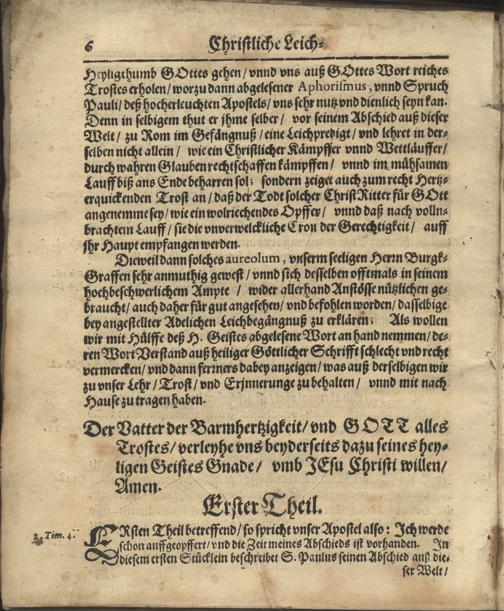 6 Christliche Leich-
Heyligthumb GOttes gehen / vnnd vns auß GOttes Wort reiches
Trostes erholen / worzu dann abgelesener Aphorismus, vnnd Spruch
Pauli / deß hocherleuchten Apostels / vns sehr nutz vnd dienlich seyn kan.
Denn in selbigem thut er jhme selber / vor seinem Abschied auß dieser
Welt / zu Rom im Gefängnuß / eine Leichpredigt / vnd lehret in der-
selben nicht allein / wie ein Christlicher Kämpffer vnnd Wettläuffer /
durch wahren Glauben rechtschaffen kämpffen / vnnd im mühsamen
Lauff biß ans Ende beharren sol; sondern zeiget auch zum recht Hertz-
erquickenden Trost an / daß der Todt solcher ChristRitter für GOtt
angenemme sey / wie ein wolriechendes Opffer / vnnd daß nach volln-
brachtem Lauff / sie die vnverwelckliche Cron der Gerechtigkeit / auff
jhr Haupt empfangen werden.
Dieweil dann solches aureolum, vnserm seeligen Herrn Burgk-
Graffen sehr anmuthig gewest / vnnd sich desselben offtmals in seinem
hochbeschwerlichem Ampte / wider allerhand Anstösse nützlichen ge-
braucht / auch daher für gut angesehen / vnd befohlen worden / dasselbige
bey angestellter Adelichen Leichbegängnuß zu erklären: Als wollen
wir mit Hülffe deß H. Geistes abgelesene Wort an hand nemmen / de-
ren WortVerstand auß heiliger Göttlicher Schrifft schlecht vnd recht
vermercken / vnd dann ferners dabey anzeigen / was auß derselbigen wir
zu vnser Lehr / Trost / vnd Erjnnerunge zu behalten / vnnd mit nach
Hause zu tragen haben.
Der Vatter der Barmhertzigkeit / vnd GOTT alles
Trostes / verleyhe vns beyderseits dazu seines hey-
ligen Geistes Gnade / vmb JEsu Christi willen /
Amen.
Erster Theil.
2. Tim. 4.
ERsten Theil betreffend / so spricht vnser Apostel also: Ich werde
schon auffgeopffert / vnd die Zeit meines Abschieds ist vorhanden. In
diesem ersten Stücklein beschreibet S. Paulus seinen Abschied auß die-
ser Welt /